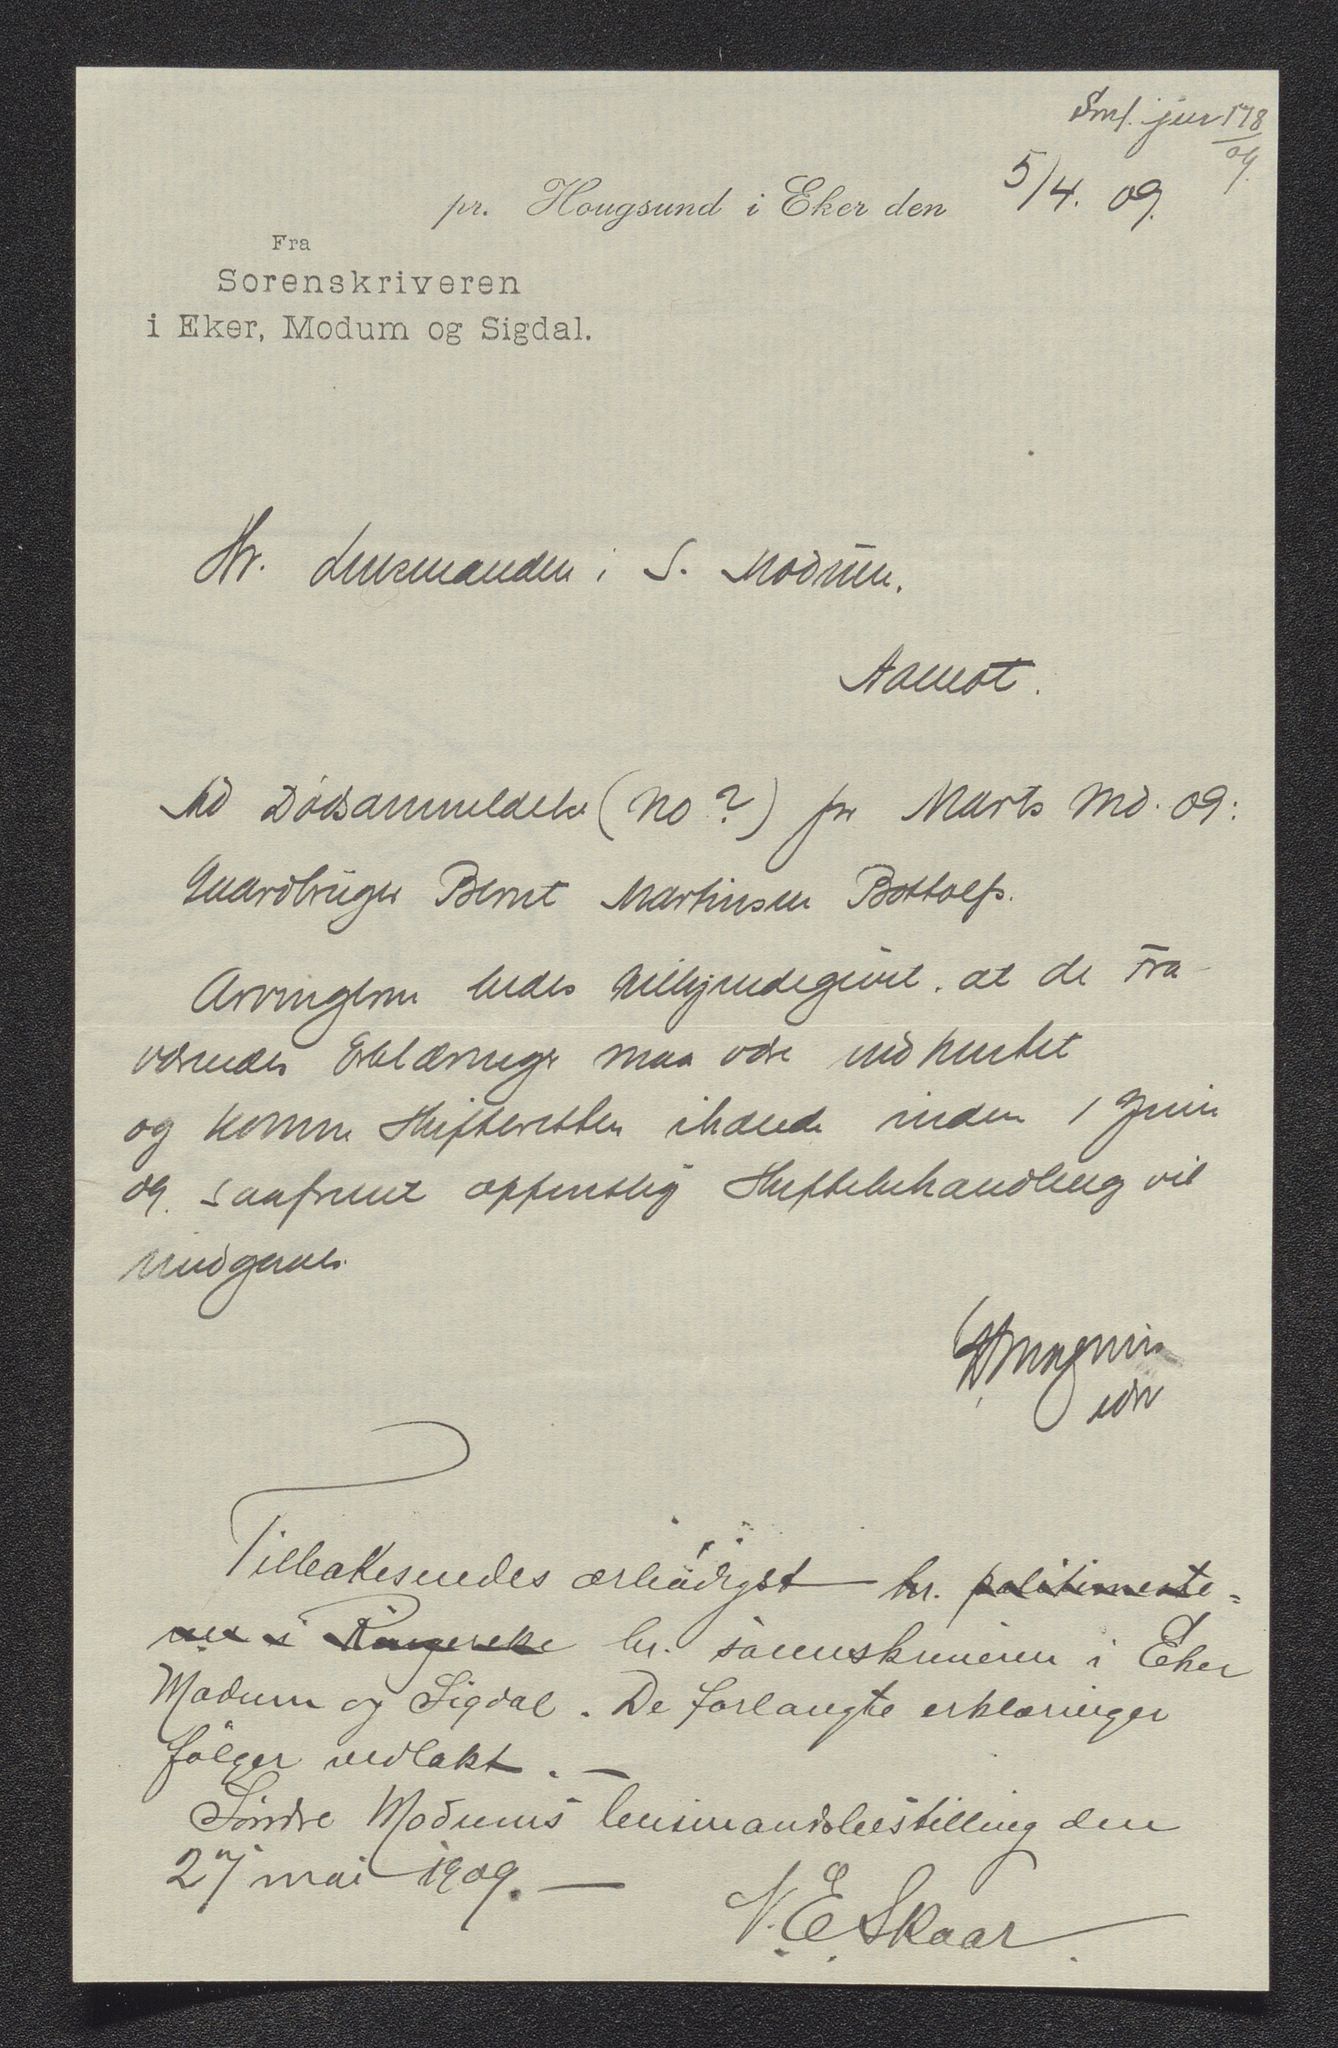 Lml. jur 178
09.
pr. Hougsund i Eker den 5/4. 09.
Fra
Sorenskriveren
i Eker, Modum og Sigdal.
Hr. Lensmanden i S. Modum.
Aamot.
Ad Dødsanmeldelse (No?) for Marts Md. 09:
Gaardbruger Bernt Martinsen Bottolfs.
Arvingerne bedes tilkjendegivet, at de Fra-
værendes Erklæringer maa være indhentet
og komme Skifteretten ihænde inden 1 Juni
09 saafremt offentlig Skiftebehandling vil
undgaaes.
Tilbakesendes ærbødigst hr. politimeste-
ren i Ringerike hr. sorenskriveren i Eker
Modum og Sigdal. De forlangte erklæringer
følger vedlakt. —
Søndre Modums lensmandsbestilling den
27 mai 1909. —
N. E. Skaar